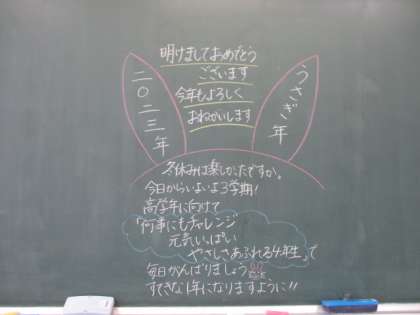 明けましておめでとう
ございます
今年もよろしく
おねがいします
二〇二三年
うさぎ年
冬休みは楽しかったですか。
今日からいよいよ3学期!
高学年に向けて
「何事にもチャレンジ
元気いっぱい
やさしさあふれる4年生」で
毎日がんばりましょう!!
すてきな1年になりますように!!